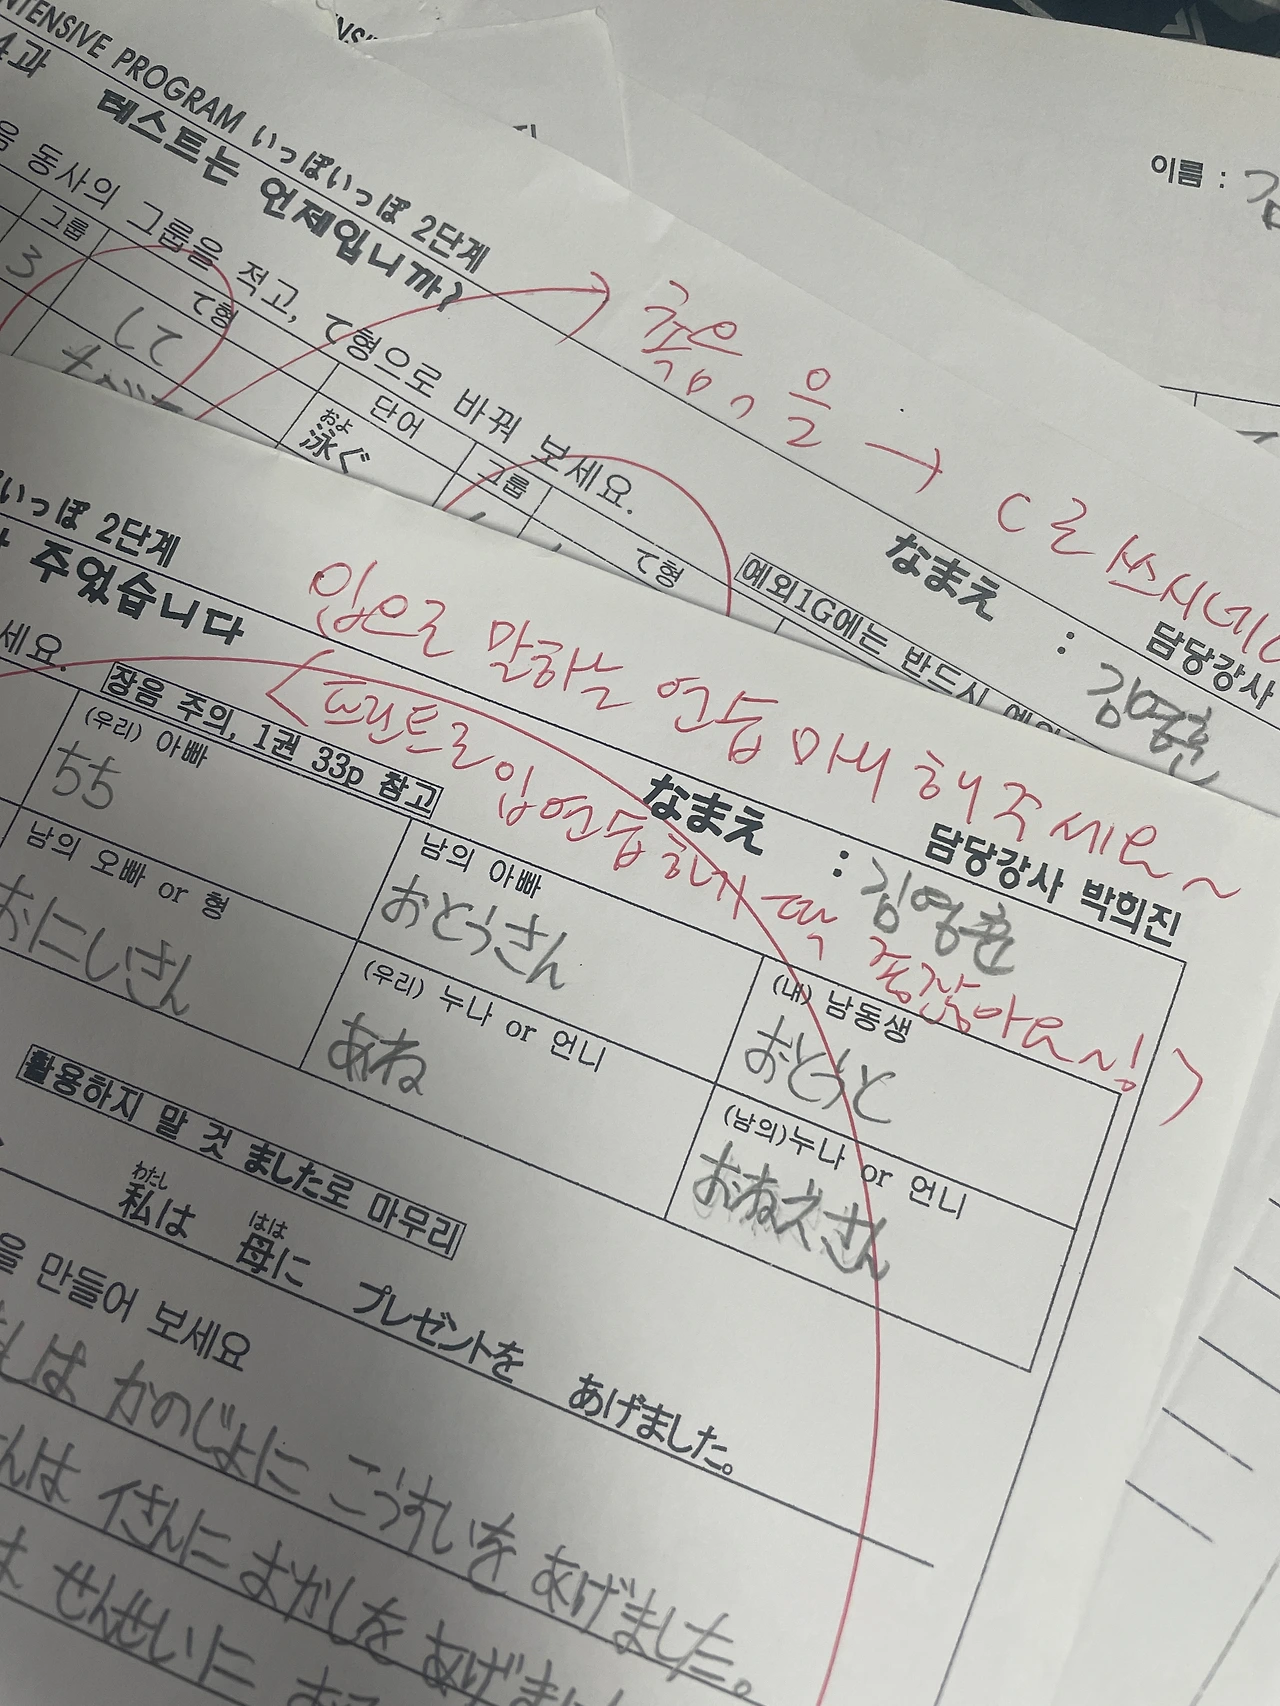 INTENSIVE PROGRAM いっぽいっぽ 2단계
4과 테스트는 언제입니까?
이름 :
동사의 그룹을 적고, て형으로 바꿔 보세요.
그룹 て형 단어 그룹 て형
3 して 泳ぐ
およ
예외1G에는 반드시
→ 을 → C로
なまえ : 김영훈
담당강사
いっぽ 2단계
주었습니다
입으로 말하는 연습 마니 해주세요~
<프린트로 입연습하기 딱 좋잖아요~! >
なまえ : 김영훈
담당강사 박희진
세요. 장음 주의, 1권 33p 참고
(우리) 아빠
ちち
남의 아빠
おとうさん
(내) 남동생
おとうと
남의 오빠 or 형
おにいさん
(우리) 누나 or 언니
あね
(남의)누나 or 언니
おねえさん
활용하지 말 것 ました로 마무리
わたし はは
私は 母に プレゼントを あげました。
을 만들어 보세요
しは かのじょに こうすいを あげました。
んは イさんに おかしを あげまし
は せんせいに